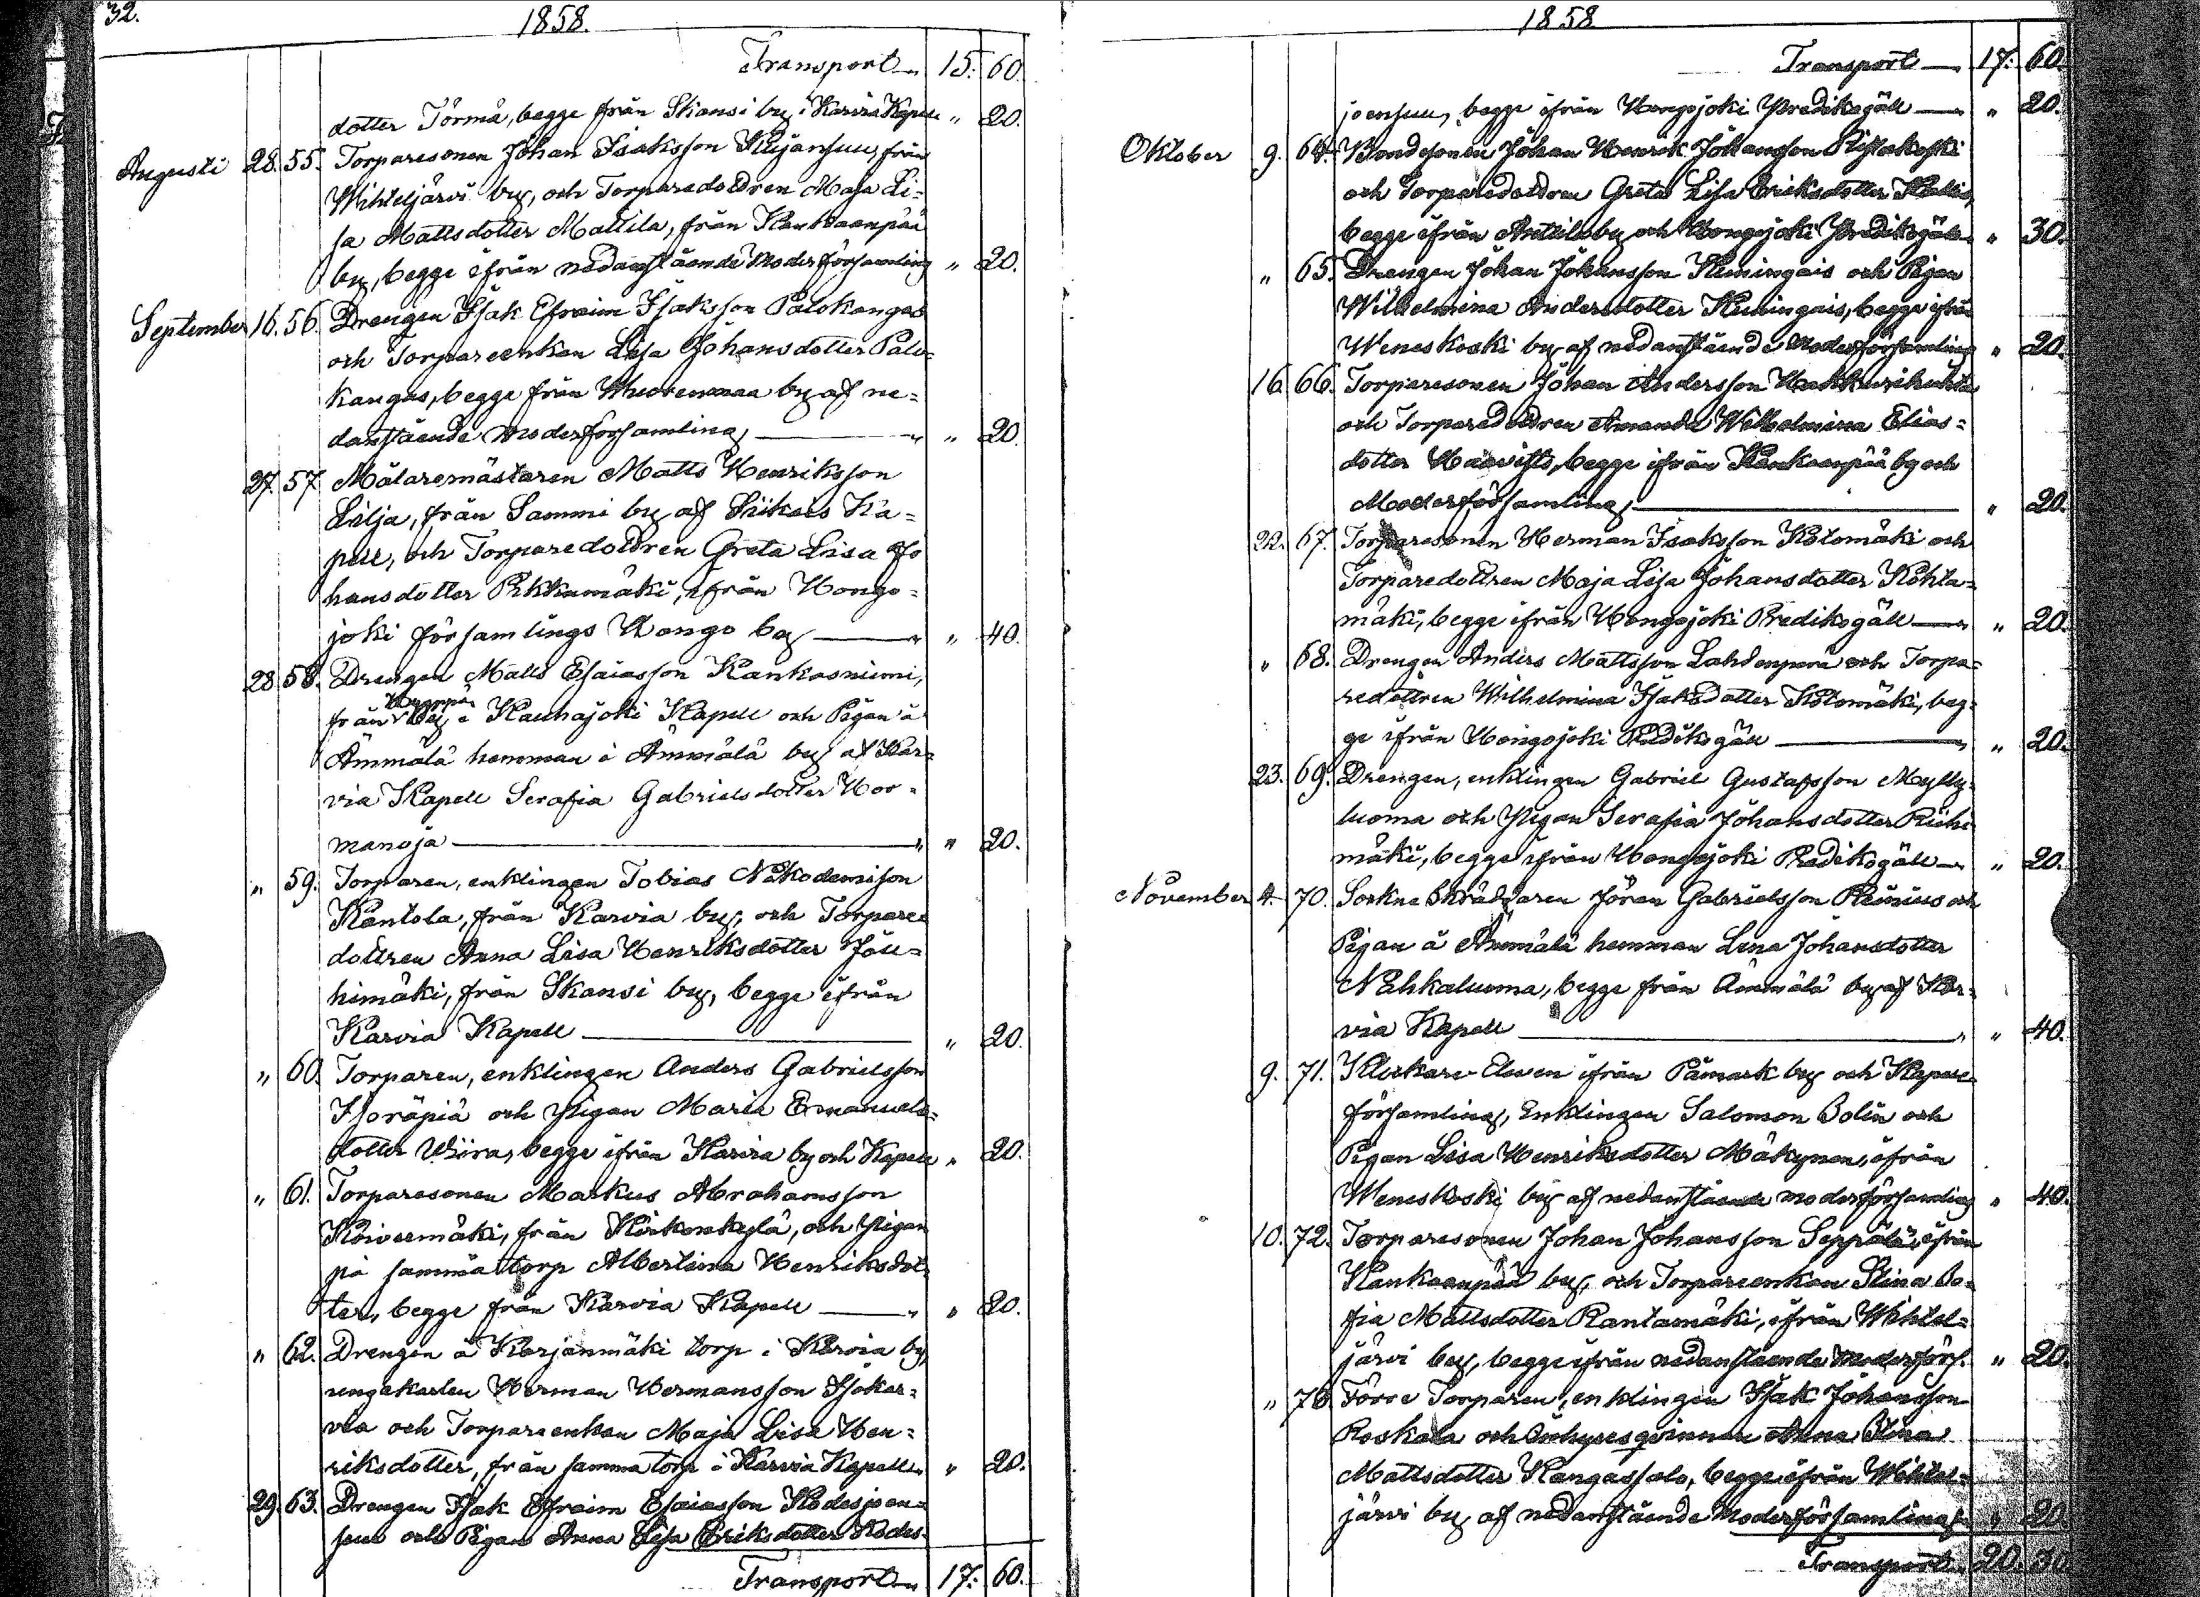 32.
1858.
Transport „ 15. 60.
dotter Törmä, begge från Skansi by i Karvia Kapell „ 20.
Augusti 28. 55. Torparesonen Johan Isaksson Kujansuu, från
Wihteljärvi by, och Torparedottren Maja Li=
sa Mattsdotter Mattila, från Kankaanpää
by, begge ifrån nedanstående Moderförsamling „ 20.
September 16. 56. Drengen Isak Efraim Isaksson Palokangas
och Torpareenkan Lisa Johansdotter Palo=
kangas, begge från Wuorenmaa by af ne=
danstående Moderförsamling „ „ 20
27. 57. Målaremästaren Matts Henriksson
Lilja, från Sammi by af Siikais Ka=
pell, och Torparedottren Greta Lisa Jo
hansdotter Pikkumäki, ifrån Hongo=
joki församlings Hongo by „ „ 40.
28. 58. Drengen Matts Esaiasson Kankasniemi,
från by i Kauhajoki Kapell och Pigan å
Ämmälä hemman i Ämmälä by af Kar=
via Kapell Serafia Gabrielsdotter Hor=
manoja „ „ 20.
„ 59. Torparen, enklingen Tobias Nikodemisson
Kantola, från Karvia by, och Torpare
dottren Anna Lisa Henriksdotter Jou=
himäki, från Skansi by, begge ifrån
Karvia Kapell „ 20.
„ 60. Torparen, enklingen Anders Gabrielsson
Isoräpiä och Pigan Maria Emanuels=
dotter Wiira, begge ifrån Karvia by och Kapell „ 20.
„ 61. Torparesonen Markus Abrahamsson
Koivermäki, från Kirkonkylä, och Pigan
på samma torp Albertina Henriksdot=
ter, begge från Karvia Kapell „ „ 20.
„ 62. Drengen å Karjanmäki torp i Karvia by,
ungakarlen Herman Hermansson Isokar=
via och Torpareenkan Maja Lisa Hen=
riksdotter, från samma torp i Karvia Kapell „ „ 20.
29. 63. Drengen Isak Efraim Esaiasson Kodesjoen=
suu och Pigan Anna Lisa Eriksdotter Kodes=
Transport „ 17. 60.
1858
Transport „ 17. 60.
joensuu, begge ifrån Hongojoki Predikogäll „ „ 20.
Oktober 9. 64. Bondesonen Johan Henrik Johansson Ristakoski
och Torparedottren Greta Lisa Eriksdotter Kallio,
begge ifrån Anttila by och Hongojoki Predikogäll „ 30.
„ 65. Drengen Johan Johansson Kuningais och Pigan
Wilhelmina Andersdotter Kuningais, begge ifrån
Weneskoski by af nedanstående Moderförsamling „ 20.
16. 66. Torparesonen Johan Andersson
och Torparedottren Amanda Wilhelmina Elias=
dotter Haavisto, begge ifrån Kankaanpää by och
Moderförsamling „ 20.
22. 67. Torparesonen Herman Isaksson Kotomäki och
Torparedottren Maja Lisa Johansdotter Kohta=
mäki, begge ifrån Hongojoki Predikogäll „ „ 20.
„ 68. Drengen Anders Mattsson Lahdenperä och Torpa=
redottren Wilhelmina Isaksdotter Kotomäki, beg=
ge ifrån Hongojoki Predikogäll „ „ 20.
23. 69. Drengen, enklingen Gabriel Gustafsson Mylly=
luoma och Pigan Serafia Johansdotter Riihi
mäki, begge ifrån Hongojoki Predikogäll „ „ 20.
November 4. 70. Sockne Skräddaren Jöran Gabrielsson Reinius och
Pigan å Ämmälä hemman Lena Johansdotter
Nahkaluoma, begge från Ämmälä by af Kar=
via Kapell „ „ 40.
9. 71. Klockare-Eleven ifrån Påmark by och Kapell
församling, Enklingen Salomon Bolin och
Pigan Lisa Henriksdotter Mäkynen, ifrån
Weneskoski by af nedanstående moderförsamling „ 40.
10. 72. Torparesonen Johan Johansson Seppälä, ifrån
Kankaanpää by, och Torpareenkan Stina So=
fia Mattsdotter Rantamäki, ifrån Wihtel=
järvi by, begge ifrån nedanstående Moderförs. „ 20.
„ 73. Förre Torparen, enklingen Isak Johansson
Koskala och Inhysesqvinnan Anna Stina
Mattsdotter Kangassalo, begge ifrån Wihtel=
järvi by af nedanstående Moderförsamling „ „ 20.
Transport „ 20. 30